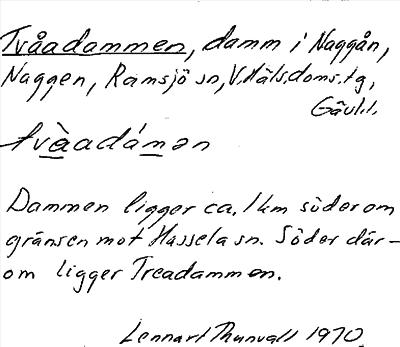 Tvåadammen, damm i Naggån,
Naggen, Ramsjö sn, V. Häls. doms. tg,
Gävl. l.
tvàadámən
Dammen ligger ca. 1 km söder om
gränsen mot Hassela sn. Söder där-
om ligger Treadammen.
Lennart Thunvall 1970